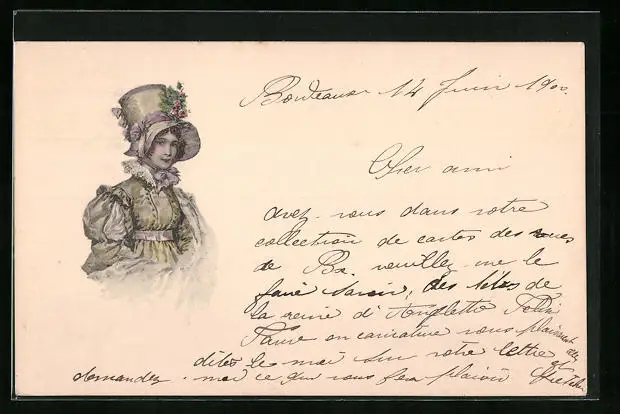 Bordeaux 14 Juin 1900.
Cher ami
avez-vous dans votre
collection de cartes des vues
de Bx. veuillez-me le
faire savoir, des têtes de
la reine d'Anglette Félix
Faure en caricature vous plairaient elles
dites le moi sur votre lettre et
demandez-moi ce qui vous fera plaisir